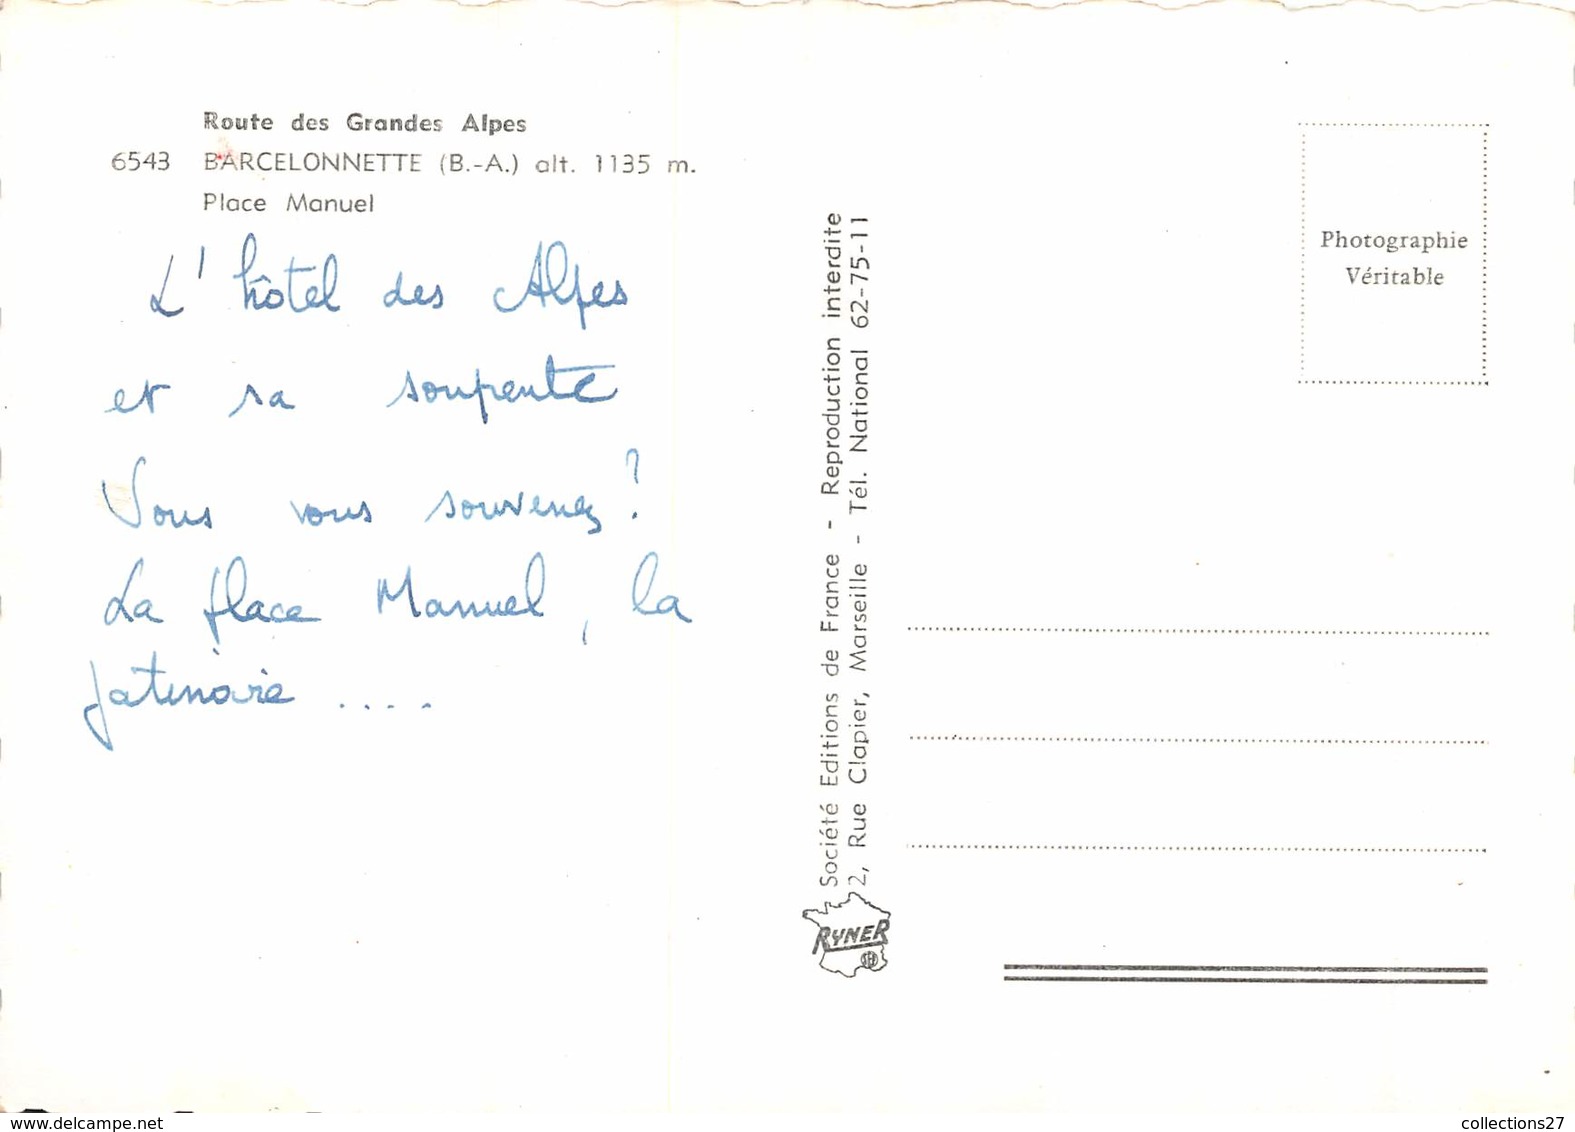 Route des Grandes Alpes
6543 BARCELONNETTE (B.-A.) alt. 1135 m.
Place Manuel
L'hôtel des Alpes
et sa soupente
Vous vous souvenez ?
La place Manuel, la
patinoire ....
Société Editions de France - Reproduction interdite
2, Rue Clapier, Marseille - Tél. National 62-75-11
RYNER
Photographie
Véritable
www.delcampe.net
collections27